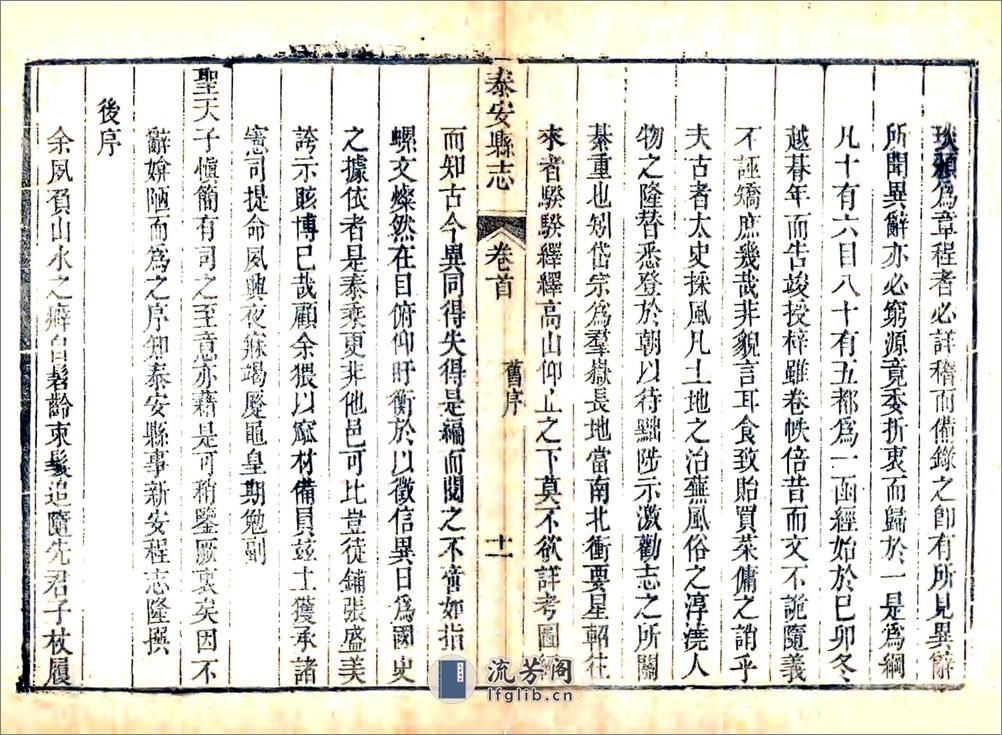 為章程者必詳稽而備錄之卽有所見異辭
所聞異辭亦必窮源竟委折衷而歸於一是爲綱
凡十有六目八十有五都爲一函經始於己卯冬
越暮年而告竣授梓雖卷帙倍昔而文不詭隨義
不誣矯庶幾哉非貌言耳食致貽買菜傭之誚乎
夫古者太史採風凡土地之治蕪風俗之淳澆人
物之隆替悉登於朝以待黜陟示激勸志之所關
綦重也矧岱宗爲羣嶽長地當南北衝要星軺往
來者騤騤繹繹高山仰止之下莫不欲詳考圖
泰安縣志
卷首
舊序
十一
而知古今異同得失得是編而閱之不啻如指
螺文燦然在目俯仰盱衡於以徵信異日爲國史
之據依者是泰乘更非他邑可比豈徒鋪張盛美
誇示賅博已哉顧余猥以窳材備員兹土獲承諸
憲司提命夙興夜寐竭蹷黽皇期勉副
聖天子愼簡有司之至意亦藉是可稍鑒厥衷矣因不
辭媕陋而爲之序知泰安縣事新安程志隆撰
後序
余夙負山水之癖自髫齡束髮追隨先君子杖履
流芳阁
lfglib.cn